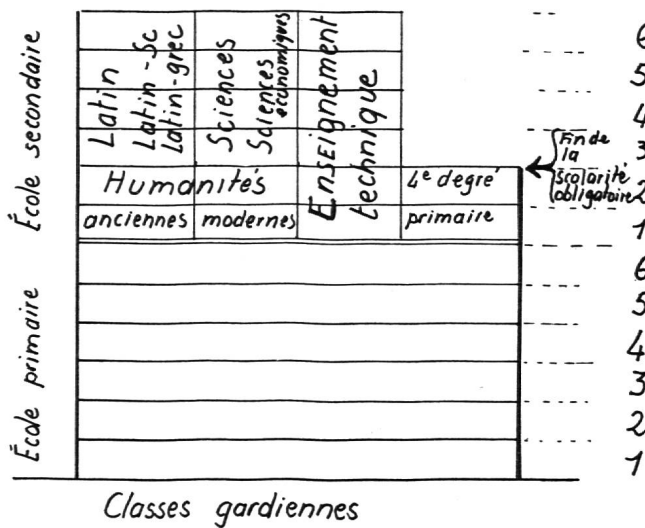 École secondaire
Latin
Latin-Sc
Latin-grec
Sciences
Sciences
économiques
Enseignement
technique
Humanités
anciennes
modernes
4e degré
primaire
Fin de
la
scolarité
obligatoire
6
5
4
3
2
1
École primaire
6
5
4
3
2
1
Classes gardiennes